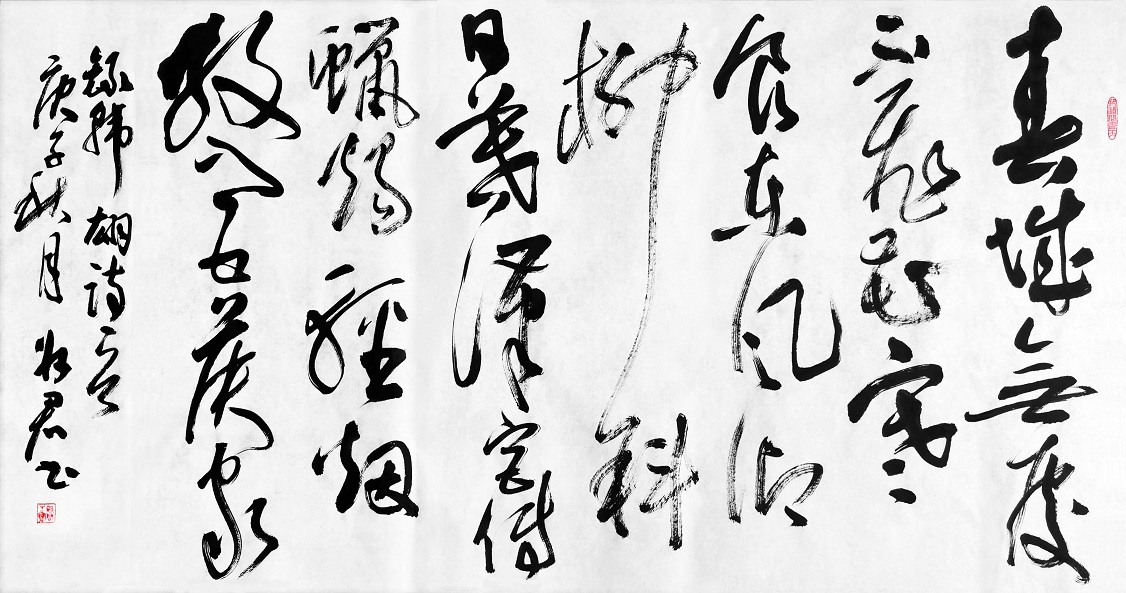 春城無處
不飛花寒
食東風御
柳斜
日暮漢宮傳
蠟燭輕烟
散入五侯家
錄韓翃詩一首
庚子秋月 君书